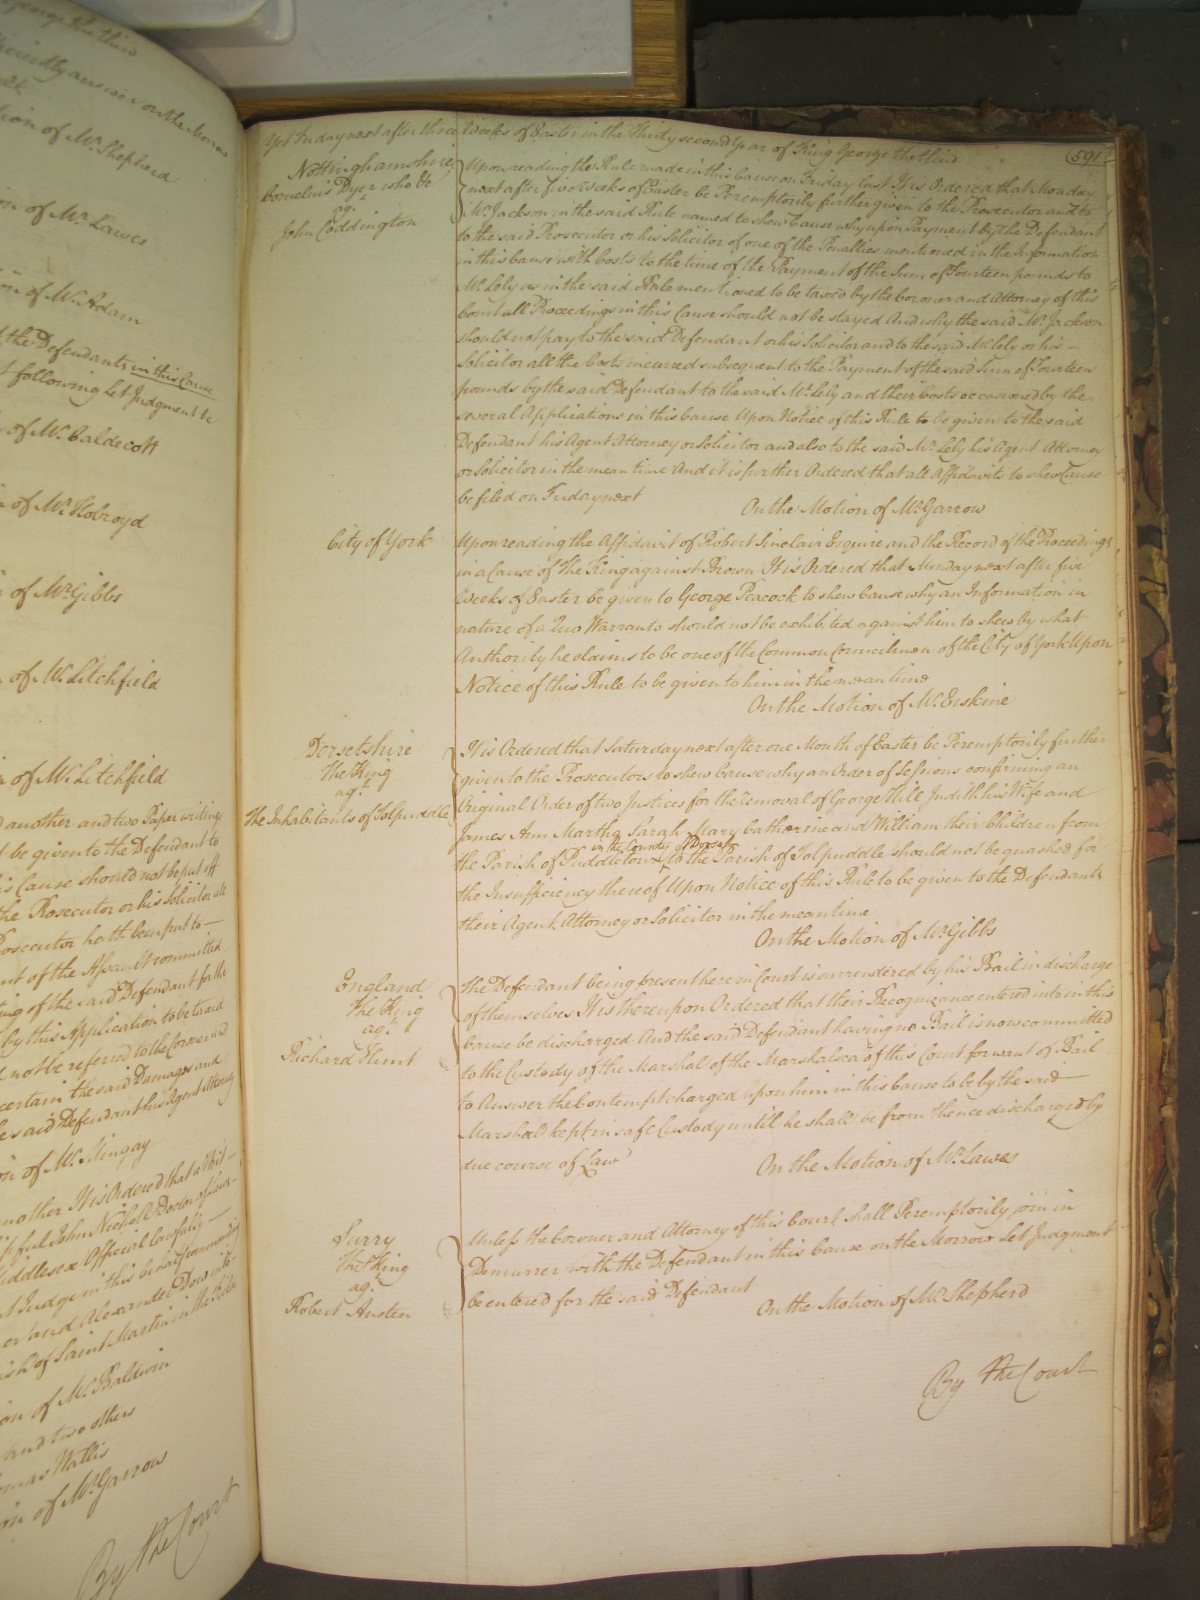 George the third
sufficiently answer on the Morrow
tion of Mr. Shepherd
on of Mr. Lawes
on of Mr. Adam
the Defendants in this Cause
following let Judgment be
of Mr. Caldecott
of Mr. Holroyd
of Mr. Gibbs
of Mr. Litchfield
of Mr. Litchfield
another and two Paper writings
be given to the Defendant to
is Cause should not be put off
the Prosecutor or his Solicitor
Prosecutor hath been put to
nt of the Assault committed
ing of the said Defendant for the
by this Application to be taxed
not be referred to the Coroner and
certain the said Damages and
said Defendant his Agent Attorney
on of Mr. Mingay
nother It is Ordered that a Writ
John Nicholl Doctor of Laws
iddlesex Official lawfully
t Judge in this behalf
er and Alexander Dow
ish of Saint Martin in the fields
on of Mr. Baldwin
and two others
omas Wallis
on of Mr. Garrow
By the Court
Yet Friday next after three Weeks of Easter in the thirty second Year of King George the third
591
Nottinghamshire
Cornelius Dyer who &c
agt.
John Coddington
Upon reading the Rule made in this Cause on Friday last It is Ordered that Monday
next after five Weeks of Easter be Peremptorily further given to the Prosecutor and to
Mr. Jackson in the said Rule named to shew Cause why upon Payment by the Defendant
to the said Prosecutor or his Solicitor of one of the Penalties mentioned in the Information
in this Cause with Costs to the time of the Payment of the Sum of Fourteen pounds to
Mr. Lely as in the said Rule mentioned to be taxed by the Coroner and Attorney of this
Court all Proceedings in this Cause should not be stayed And why the said Mr. Jackson
should not pay to the said Defendant or his Solicitor and to the said Mr. Lely or his
Solicitor all the Costs incurred subsequent to the Payment of the said Sum of Fourteen
pounds by the said Defendant to the said Mr. Lely and their Costs occasioned by the
several Applications in this Cause Upon Notice of this Rule to be given to the said
Defendant his Agent Attorney or Solicitor and also to the said Mr. Lely his Agent Attorney
or Solicitor in the mean time And it is further Ordered that all Affidavits to shew Cause
be filed on Friday next
On the Motion of Mr. Garrow
City of York
Upon reading the Affidavit of Robert Sinclair Esquire and the Record of the Proceedings
in a Cause of the King against Brown It is Ordered that Monday next after five
Weeks of Easter be given to George Peacock to shew Cause why an Information in
nature of a Quo Warranto should not be exhibited against him to shew by what
Authority he claims to be one of the Common Councilmen of the City of York Upon
Notice of this Rule to be given to him in the mean time
On the Motion of Mr. Erskine
Dorsetshire
The King
agt.
The Inhabitants of Tolpuddle
It is Ordered that Saturday next after one Month of Easter be Peremptorily further
given to the Prosecutors to shew Cause why an Order of Sessions confirming an
Original Order of two Justices for the removal of George Hill Judith his Wife and
James Ann Martha Sarah Mary Catherine and William their Children from
in the County of Dorset
the Parish of Puddletown to the Parish of Tolpuddle should not be quashed for
the Insufficiency thereof Upon Notice of this Rule to be given to the Defendants
their Agent Attorney or Solicitor in the mean time
On the Motion of Mr. Gibbs
England
The King
agt.
Richard Flint
The Defendant being present here in Court is surrendered by his Bail in discharge
of themselves It is thereupon Ordered that their Recognizance entered into in this
Cause be discharged And the said Defendant having no Bail is now committed
to the Custody of the Marshal of the Marshalsea of this Court for want of Bail
to Answer the Contempt charged upon him in this Cause to be by the said
Marshal kept in safe Custody until he shall be from thence discharged by
due course of Law
On the Motion of Mr. Lawes
Surry
The King
agt.
Robert Austen
Unless the Coroner and Attorney of this Court shall Peremptorily join in
Demurrer with the Defendant in this Cause on the Morrow Let Judgment
be entered for the said Defendant
On the Motion of Mr. Shepherd
By the Court